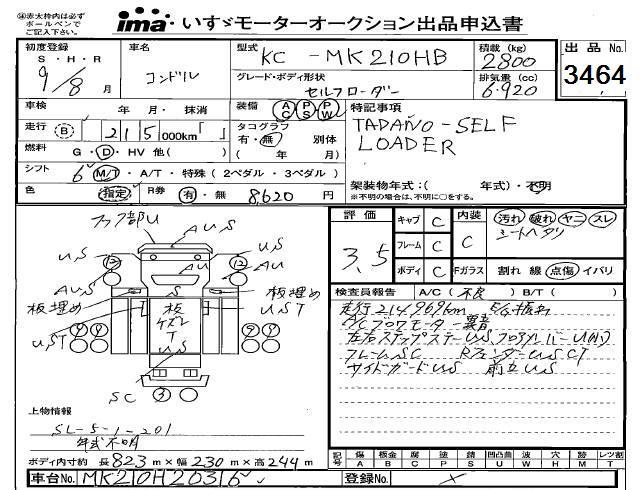 ㊟赤太枠内は必ず
ボールペンで
ご記入下さい。
ima いすゞモーターオークション出品申込書
初度登録
S・H・R
9/8 月
車名
コンドル
型式 KC-MK210HB
積載(kg)
2800
出品No.
3464
グレード・ボディ形状
セルフローダー
排気量(cc)
6.920
車検 年 月・抹消
装備 AC PS PW
特記事項
TADANO-SELF
LOADER
走行 B 215 000km「 」
タコグラフ
有・無 別体
( 年 月)
燃料 G・D・HV 他( )
シフト 6 M/T・A/T・特殊(2ペダル・3ペダル)
架装物年式:( 年式)・不明
※不明の場合は、不明に○をする。
色 指定 R券 有・無 8620 円
フック部U AUS
US ⑫ AU AU ⑫ US AU
AUS S US
板埋め 板 板埋め
UST T UST
US
SC ③
評価
3.5
キャブ C
フレーム C
ボディ C
内装
C
汚れ 破れ ヤニ スレ
シートヘタリ
Fガラス 割れ 線 点傷 イバリ
検査員報告 A/C(不良) B/T( )
走行214,969km
A/Cブロワモーター異音
左右ステップステーUS
フレームSC RフェンダーUSCT
サイドガードUS
上物情報
SL-5-1-201
年式不明
ボディ内寸約 長823m×幅230m×高244m
記号 傷A 板金B 腐C 塗P 錆S 凹凸曲U 波W 穴H 跡M レツ割T
車台No. MK210H20316
登録No.